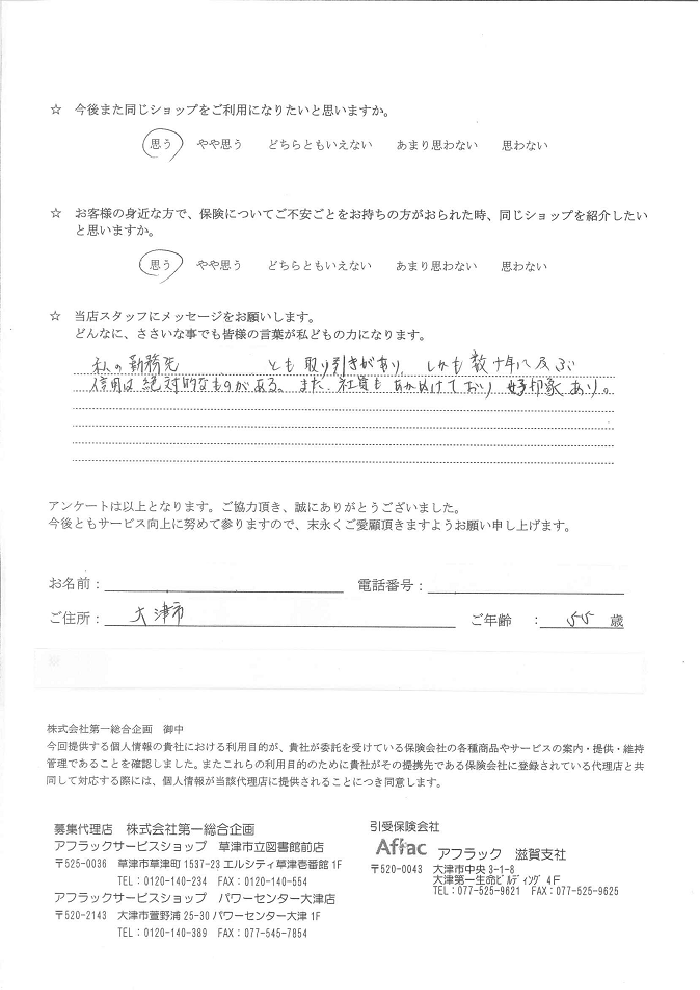 ☆ 今後また同じショップをご利用になりたいと思いますか。
思う やや思う どちらともいえない あまり思わない 思わない
☆ お客様の身近な方で、保険についてご不安ごとをお持ちの方がおられた時、同じショップを紹介したい
と思いますか。
思う やや思う どちらともいえない あまり思わない 思わない
☆ 当店スタッフにメッセージをお願いします。
どんなに、ささいな事でも皆様の言葉が私どもの力になります。
私の勤務先 とも取り引きがあり、しかも数十年に及ぶ
信用は絶対的なものがある。また、社員もあかぬけており 好印象あり。
アンケートは以上となります。ご協力頂き、誠にありがとうございました。
今後ともサービス向上に努めて参りますので、末永くご愛顧頂きますようお願い申し上げます。
お名前： 電話番号：
ご住所： 大津市 ご年齢 ： 55 歳
株式会社第一総合企画 御中
今回提供する個人情報の貴社における利用目的が、貴社が委託を受けている保険会社の各種商品やサービスの案内・提供・維持
管理であることを確認しました。またこれらの利用目的のために貴社がその提携先である保険会社に登録されている代理店と共
同して対応する際には、個人情報が当該代理店に提供されることにつき同意します。
募集代理店 株式会社第一総合企画
アフラックサービスショップ 草津市立図書館前店
〒525-0036 草津市草津町1537-23エルシティ草津壱番館1F
TEL：0120-140-234 FAX：0120-140-554
アフラックサービスショップ パワーセンター大津店
〒520-2143 大津市萱野浦25-30パワーセンター大津1F
TEL：0120-140-389 FAX：077-545-7854
引受保険会社
Aflac アフラック 滋賀支社
〒520-0043 大津市中央3-1-8
大津第一生命ビルディング4F
TEL：077-525-9621 FAX：077-525-9625